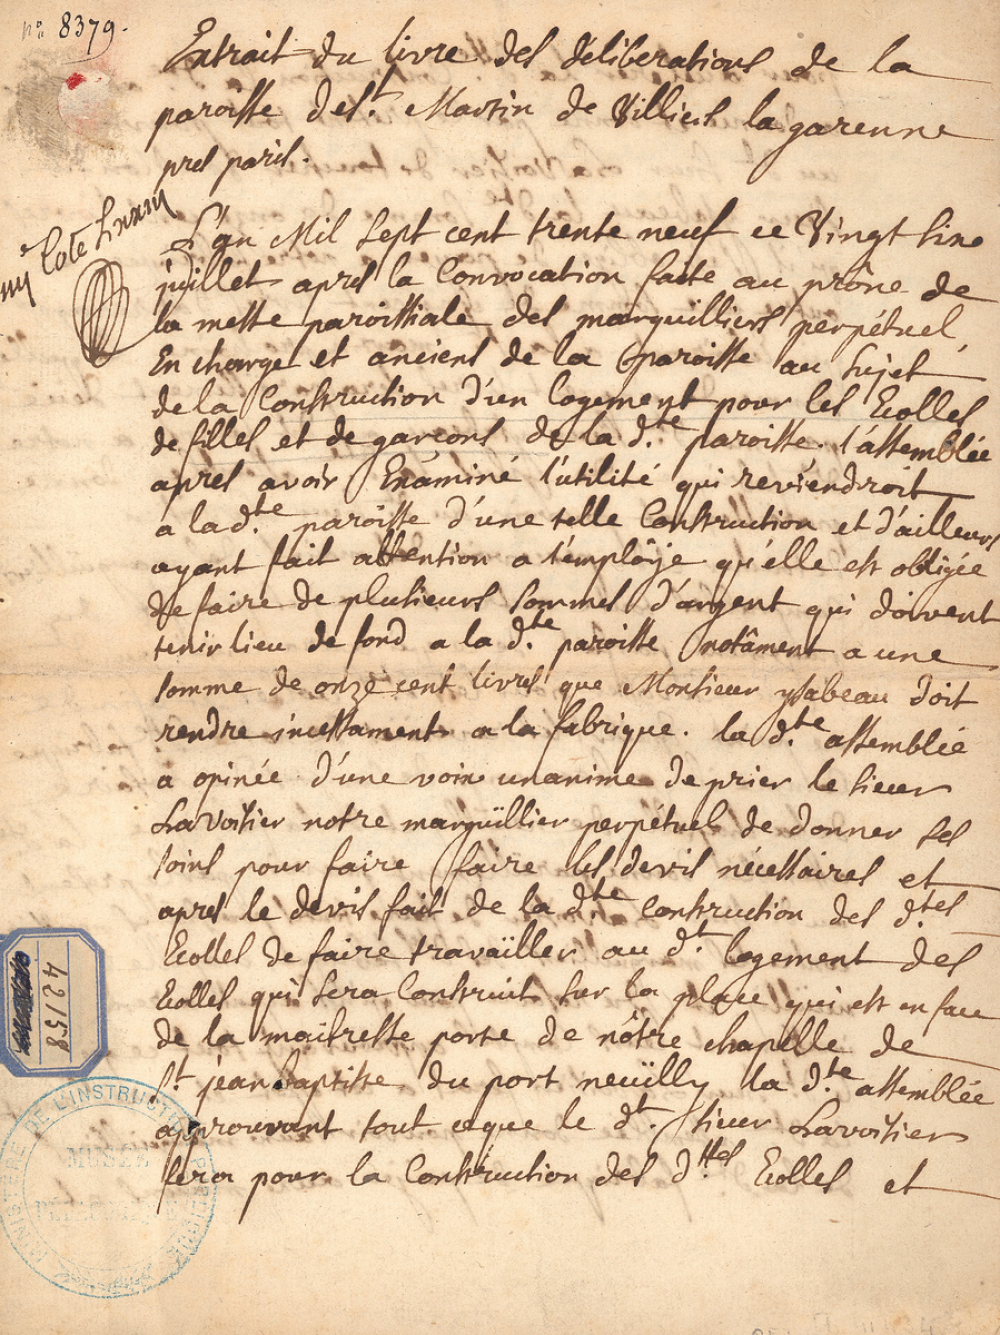 n.° 8379.
Extrait du livre des deliberations de la
paroisse de S.t Martin de Villiers la garenne
pres paris.
Cote
L'an Mil sept cent trente neuf ce Vingt sixe
juillet apres la Convocation faite au prône de
la messe paroissiale des marguilliers perpétuel,
En charge et anciens de la paroisse au sujet
de la Construction d'un logement pour les Ecolles
de filles et de garçons de la d.te paroisse. l'assemblée
apres avoir Examiné l'utilité qui reviendroit
a la d.te paroisse d'une telle Construction et d'ailleurs
ayant fait attention a l'employe qu'elle est obligée
de faire de plusieurs sommes d'argent qui doivent
tenir lieu de fond a la d.te paroisse notâment a une
somme de onze cent livres que Monsieur ysabeau doit
rendre incessament a la fabrique. la d.te assemblée
a opinée d'une voix unanime de prier le sieur
Lavoisier notre marguillier perpétuel de donner ses
soins pour faire faire les devis nécessaires et
apres le devis fait de la d.te Construction des d.tes
Ecolles de faire travaïller au d.t logement des
Ecolles qui sera Construit sur la place qui est en face
de la maïtresse porte de nôtre chapelle de
S.t jean baptiste du port neuïlly la d.te assemblée
approuvant tout ce que le d.t sieur Lavoisier
fera pour la Construction des d.ttes Ecolles et
42158
MINISTÈRE DE L'INSTRUCTION PUBLIQUE
MUSÉE
PÉDAGOGIQUE